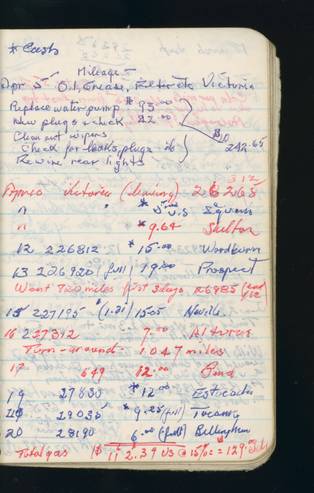 * Costs
Mileage
Apr 5 Oil, Grease, Filter etc Victoria
Replace water pump * 93.00
New plugs & check 22.00
Clean out wipers
Check for leaks, plugs 242.65
Rewire rear lights
312
Victoria (leaving)
" * 5.00 U.S Sequim
" * 9.64 Shelton
12 226812 * 15.00 Woodburn
13 226920 (full) 19.00 Prospect
Went 720 miles first 3 days
15 227195 * (1.21) 15.05
16 227312 7.00 Alturas
Turn-around - 1047 miles
17 649 12.00
19 27830 * 12.00 Estacada
28030 * 9.25 (full) Tacoma
20 28190 6.00 (full) Bellingham
Total gas $ 112.39 US @ 15% =